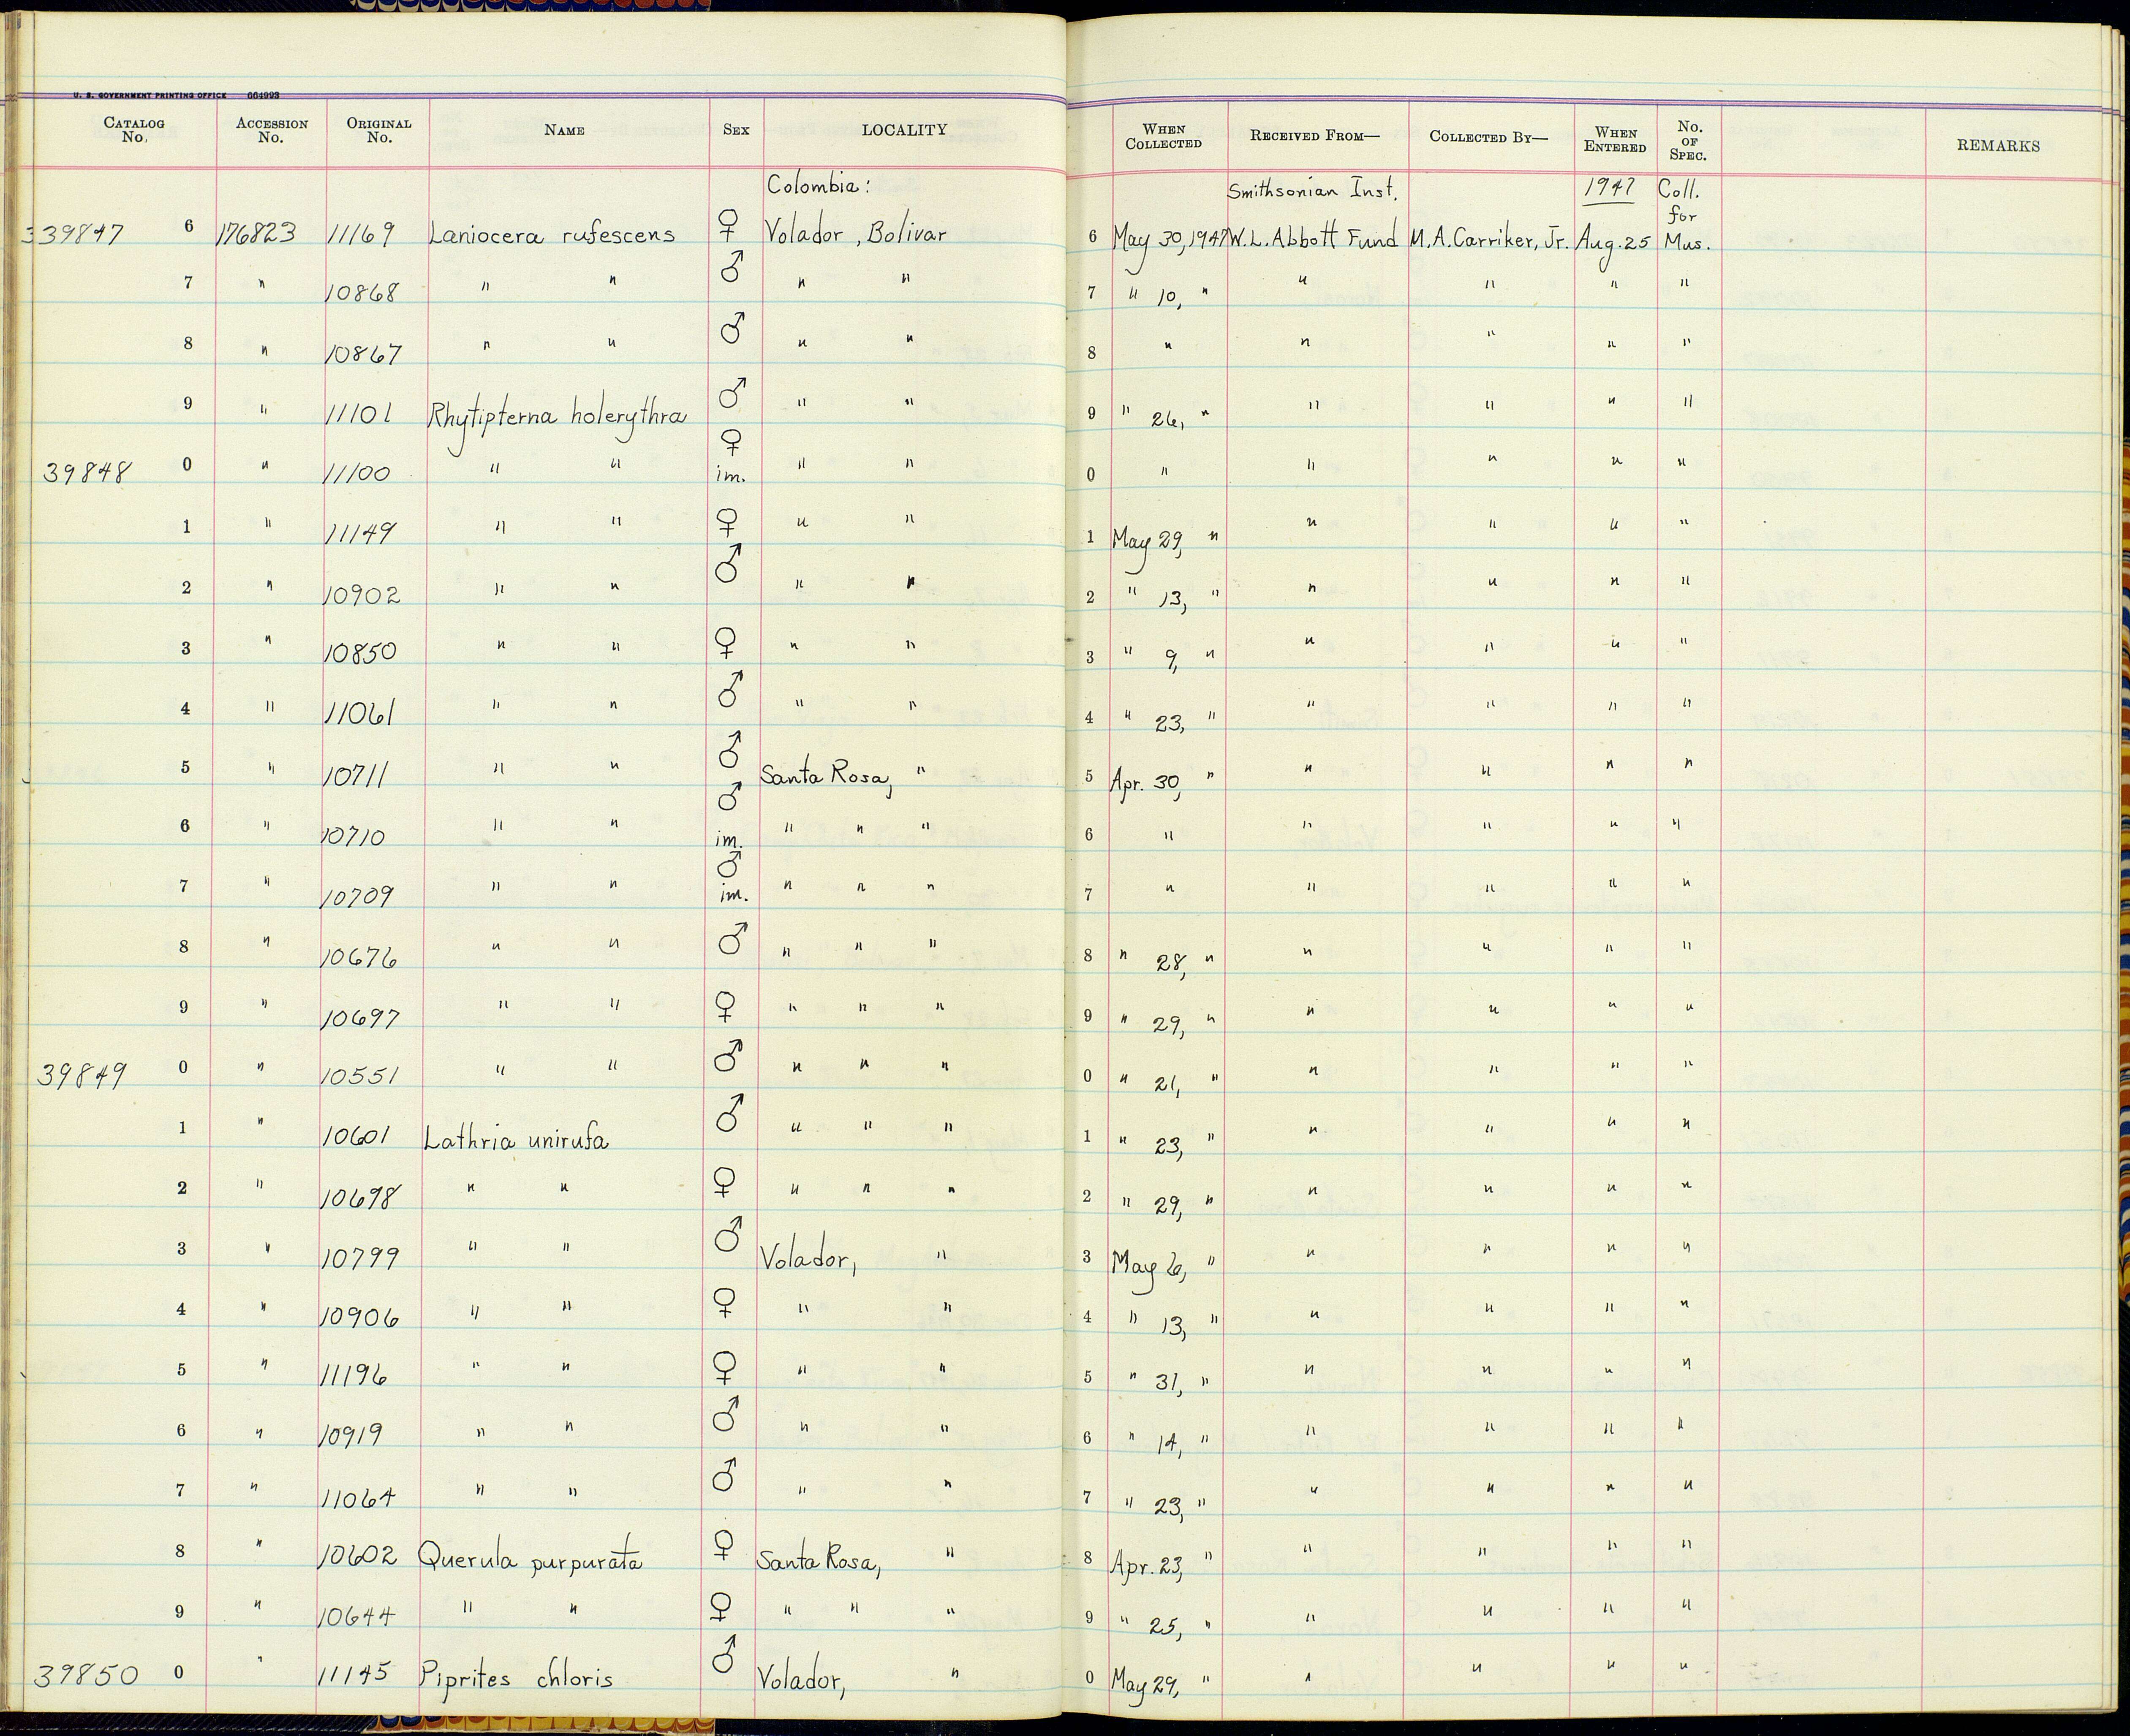 U. S. GOVERNMENT PRINTING OFFICE 664993
CATALOG No. ACCESSION No. ORIGINAL No. NAME SEX LOCALITY WHEN COLLECTED RECEIVED FROM— COLLECTED BY— WHEN ENTERED No. OF SPEC. REMARKS
Colombia: Smithsonian Inst. 1947 Coll. for
339847 6 176823 11169 Laniocera rufescens ♀ Volador, Bolivar 6 May 30, 1947 W.L. Abbott Fund M.A. Carriker, Jr. Aug. 25 Mus.
7 " 10868 " " ♂ " " 7 " 10, " " " " "
8 " 10867 " " ♂ " " 8 " " " " "
9 " 11101 Rhytipterna holerythra ♂ " " 9 " 26, " " " " "
39848 0 " 11100 " " ♀ im. " " 0 " " " " "
1 " 11149 " " ♀ " " 1 May 29, " " " " "
2 " 10902 " " ♂ " " 2 " 13, " " " " "
3 " 10850 " " ♀ " " 3 " 9, " " " " "
4 " 11061 " " ♂ " " 4 " 23, " " " " "
5 " 10711 " " ♂ Santa Rosa, " 5 Apr. 30, " " " " "
6 " 10710 " " ♂ im. " " " 6 " " " " "
7 " 10709 " " ♂ im. " " " 7 " " " " "
8 " 10676 " " ♂ " " " 8 " 28, " " " " "
9 " 10697 " " ♀ " " " 9 " 29, " " " " "
39849 0 " 10551 " " ♂ " " " 0 " 21, " " " " "
1 " 10601 Lathria unirufa ♂ " " " 1 " 23, " " " " "
2 " 10698 " " ♀ " " " 2 " 29, " " " " "
3 " 10799 " " ♂ Volador, " 3 May 6, " " " " "
4 " 10906 " " ♀ " " 4 " 13, " " " " "
5 " 11196 " " ♀ " " 5 " 31, " " " " "
6 " 10919 " " ♂ " " 6 " 14, " " " " "
7 " 11064 " " ♂ " " 7 " 23, " " " " "
8 " 10602 Querula purpurata ♀ Santa Rosa, " 8 Apr. 23, " " " " "
9 " 10644 " " ♀ " " " 9 " 25, " " " " "
39850 0 " 11145 Piprites chloris ♂ Volador, " 0 May 29, " " " " "